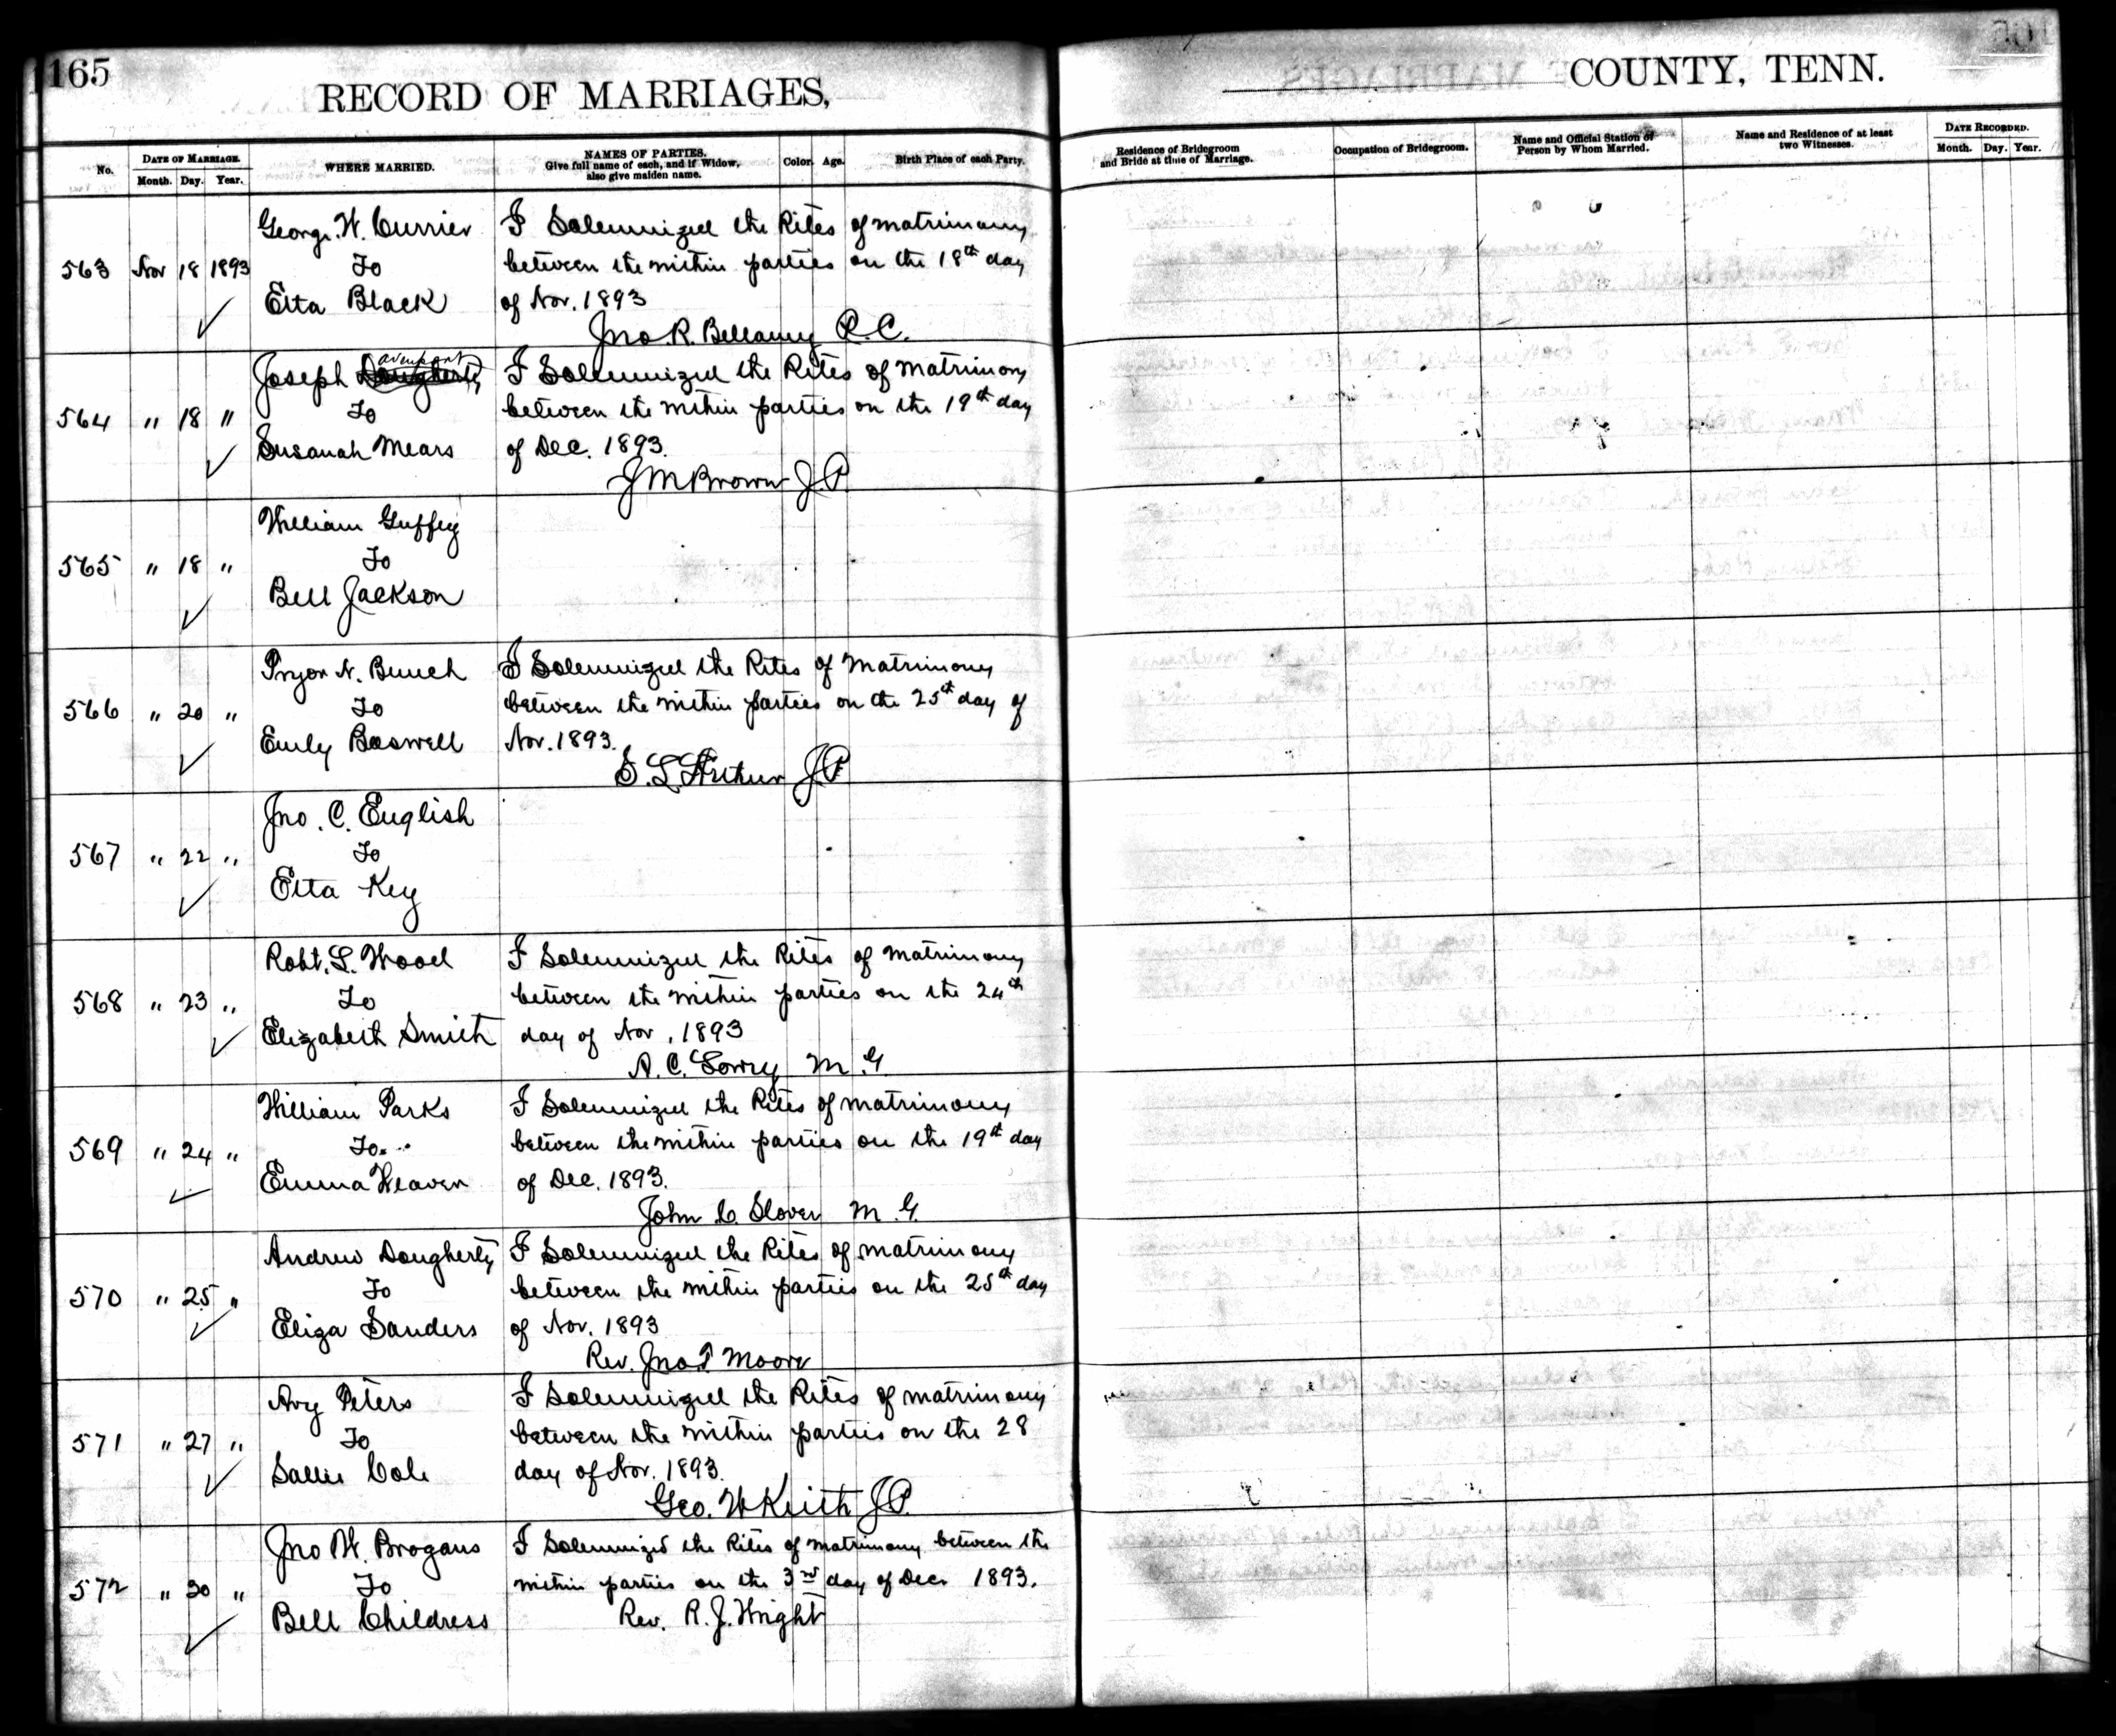 165
RECORD OF MARRIAGES,
COUNTY, TENN.
No.
DATE OF MARRIAGE.
Month. Day. Year.
WHERE MARRIED.
NAMES OF PARTIES.
Give full name of each, and if Widow,
also give maiden name.
Color.
Age.
Birth Place of each Party.
Residence of Bridegroom
and Bride at time of Marriage.
Occupation of Bridegroom.
Name and Official Station of
Person by Whom Married.
Name and Residence of at least
two Witnesses.
DATE RECORDED.
Month. Day. Year.
563 Nov 18 1893
George. W. Currier
To
Etta Black
I Solemnized the Rites of matrimony
between the within parties on the 18th day
of Nov. 1893
Jno. R. Bellamy R. C.
564 " 18 "
Joseph Davenport
To
Susanah Mears
I Solemnized the Rites of Matrimony
between the within parties on the 19th day
of Dec. 1893.
J M Brown J P
565 " 18 "
William Guffey
To
Bell Jackson
566 " 20 "
Pryor N. Bunch
To
Emily Boswell
I Solemnized the Rites of Matrimony
between the within parties on the 25th day of
Nov. 1893.
S. L. Arthur J P
567 " 22 "
Jno. C. English
To
Etta Key
568 " 23 "
Robt. L. Wood
To
Elizabeth Smith
I Solemnized the Rites of Matrimony
between the within parties on the 24th
day of Nov, 1893
A. C. Lowry M. G.
569 " 24 "
William Parks
To
Emma Weaver
I Solemnized the Rites of matrimony
between the within parties on the 19th day
of Dec. 1893.
John C. Slover M. G.
570 " 25 "
Andrew Dougherty
To
Eliza Sanders
I Solemnized the Rites of matrimony
between the within parties on the 25th day
of Nov. 1893
Rev. Jno. Moore
571 " 27 "
Avy Peters
To
Sallie Cole
I Solemnized the Rites of matrimony
between the within parties on the 28
day of Nov. 1893.
Geo. W Keith J P.
572 " 30 "
Jno W. Brogans
To
Bell Childress
I Solemnized the Rites of matrimony between the
within parties on the 3rd day of Dec. 1893.
Rev. R. J. Wright